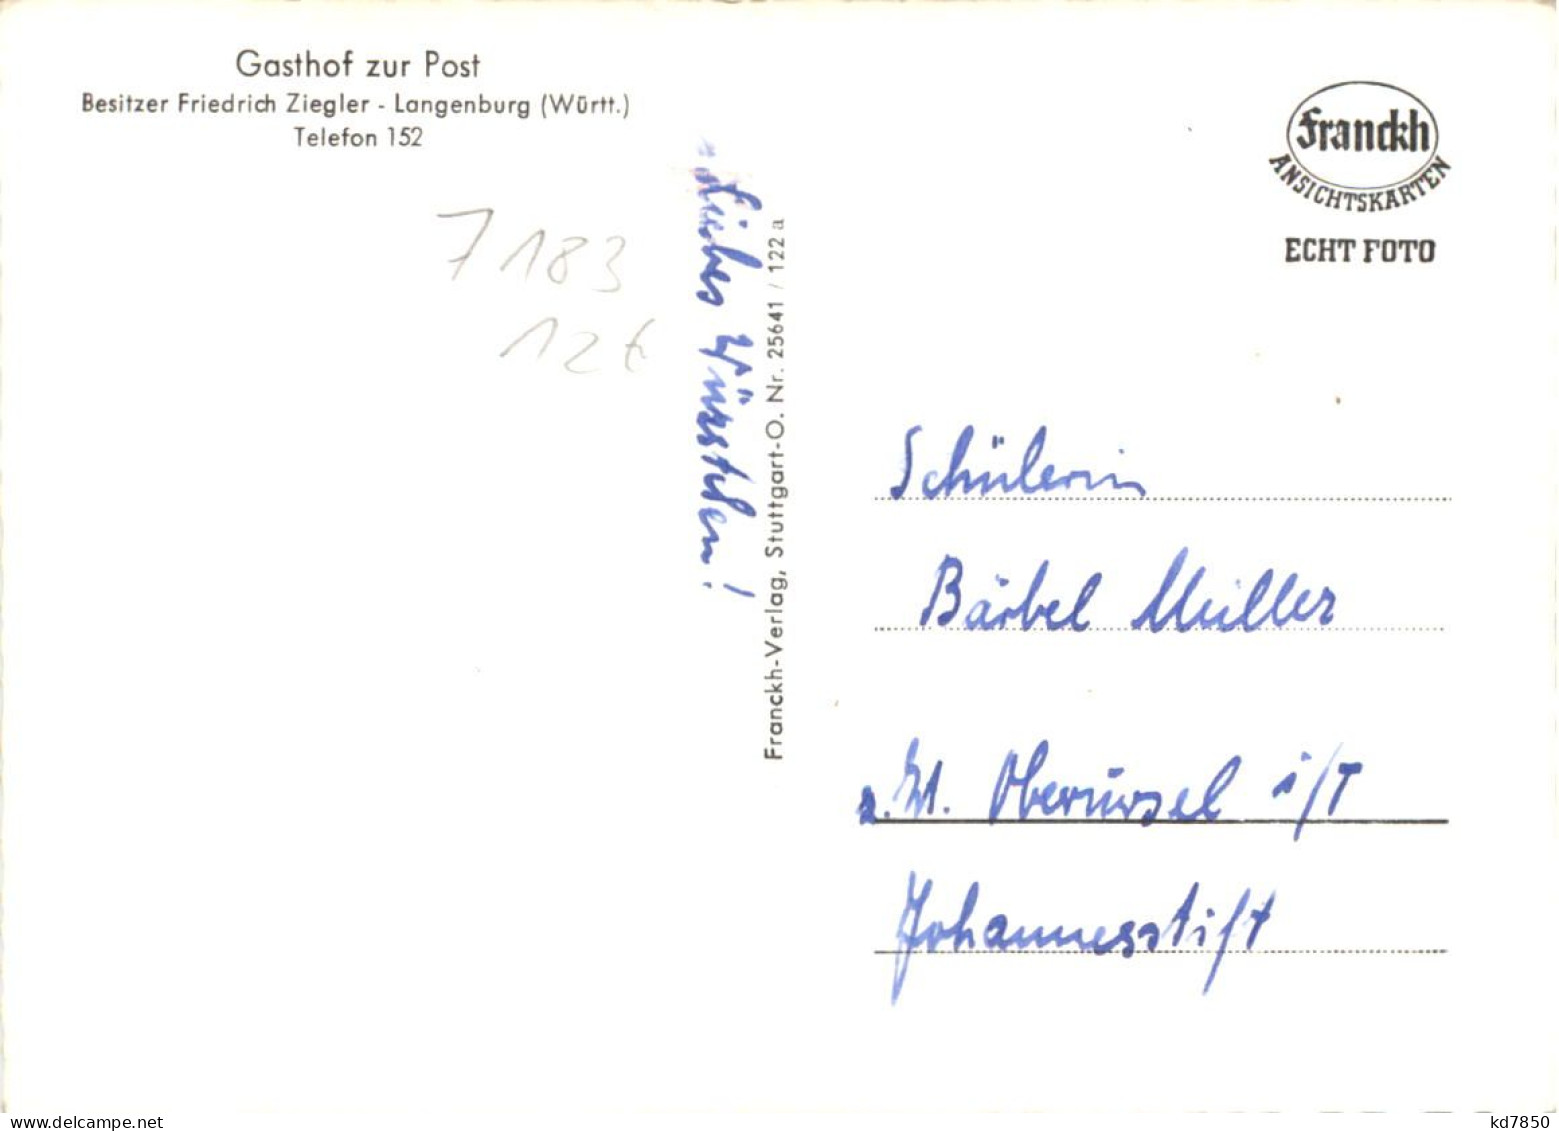 Gasthof zur Post
Besitzer Friedrich Ziegler - Langenburg (Württ.)
Telefon 152
7183
12€
Liebes Würstchen!
Franckh-Verlag, Stuttgart-O. Nr. 25641 / 122 a
Franckh
ANSICHTSKARTEN
ECHT FOTO
Schülerin
Bärbel Müller
z. Zt. Oberursel i/T
Johannesstift
www.delcampe.net
kd7850